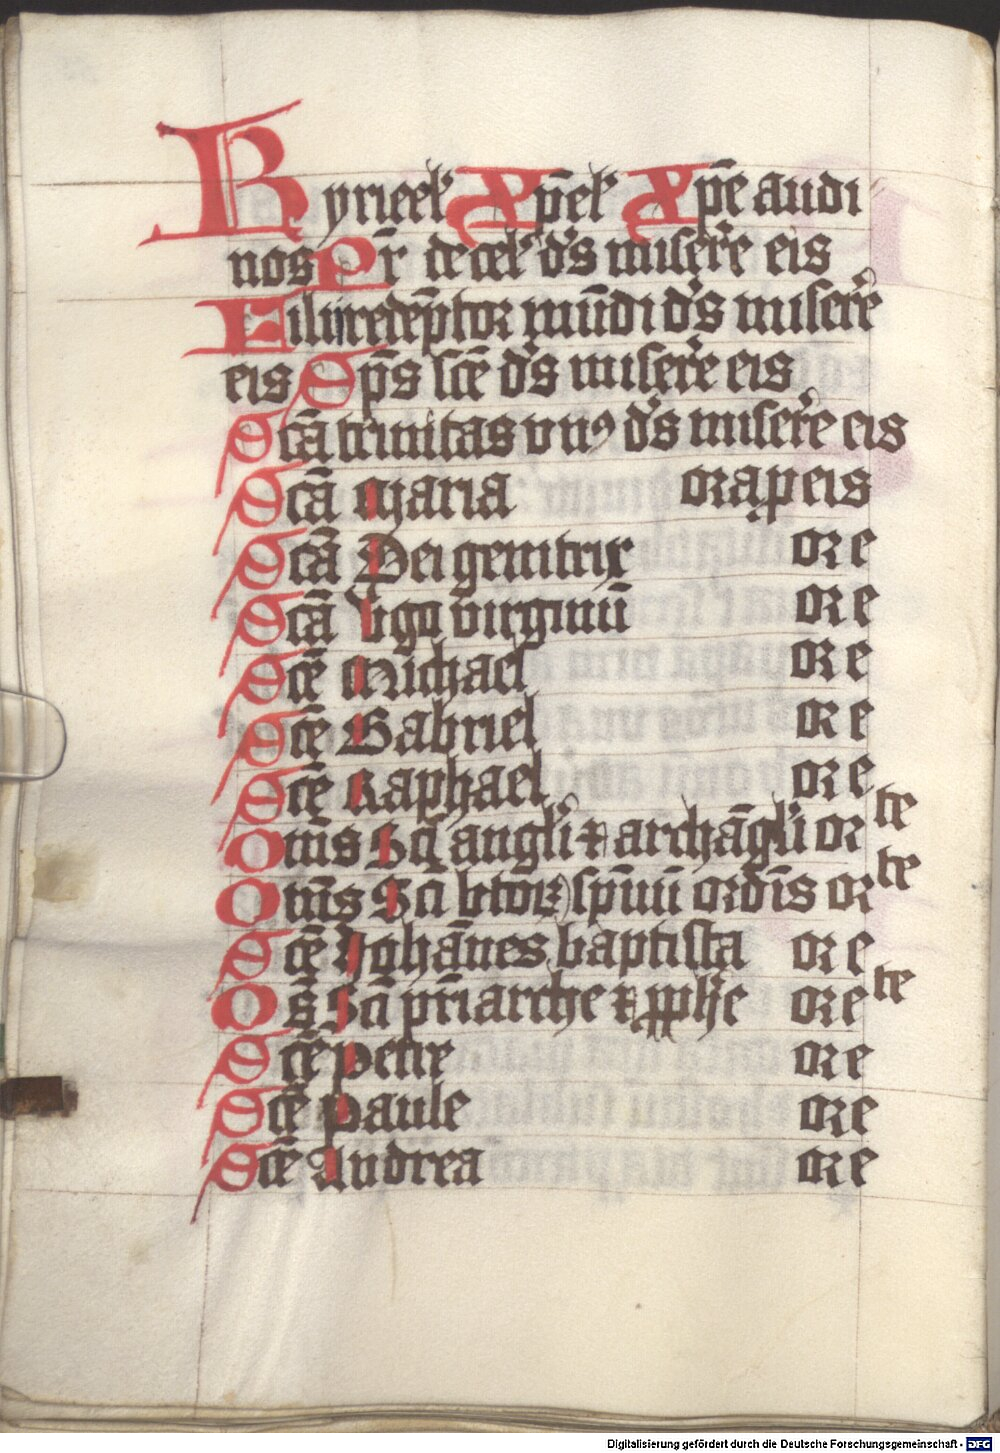 Kyrieel' Xp̄el' Xp̄e audi
nos Pr̄ de cel' d's miser̄e eis
Fili redēptor mūdi d's miser̄e
eis Sp̄s sc̄e d's miser̄e eis
Scā trinitas vnꝰ d's miser̄e eis
Scā Maria ora ꝓ eis
Scā Dei genitrix or e
Scā v̄go virginū or e
Sc̄e Michael or e
Sc̄e Gabriel or e
Sc̄e Raphael or e
Om̄s Sc̄i angl'i ⁊ archāgl'i or te
Om̄s Sc̄i btoꝝ sp̄uū ordīs or te
Sc̄e Johānes baptista or e
Os̄ Sc̄i pr̄iarche ⁊ ꝓph'e or e te
Sc̄e petre or e
Sc̄e paule or e
Sc̄e Andrea or e
Digitalisierung gefördert durch die Deutsche Forschungsgemeinschaft - DFG